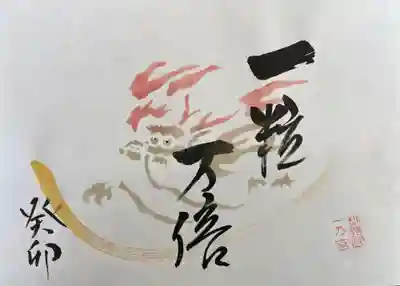 一粒
万倍
癸卯